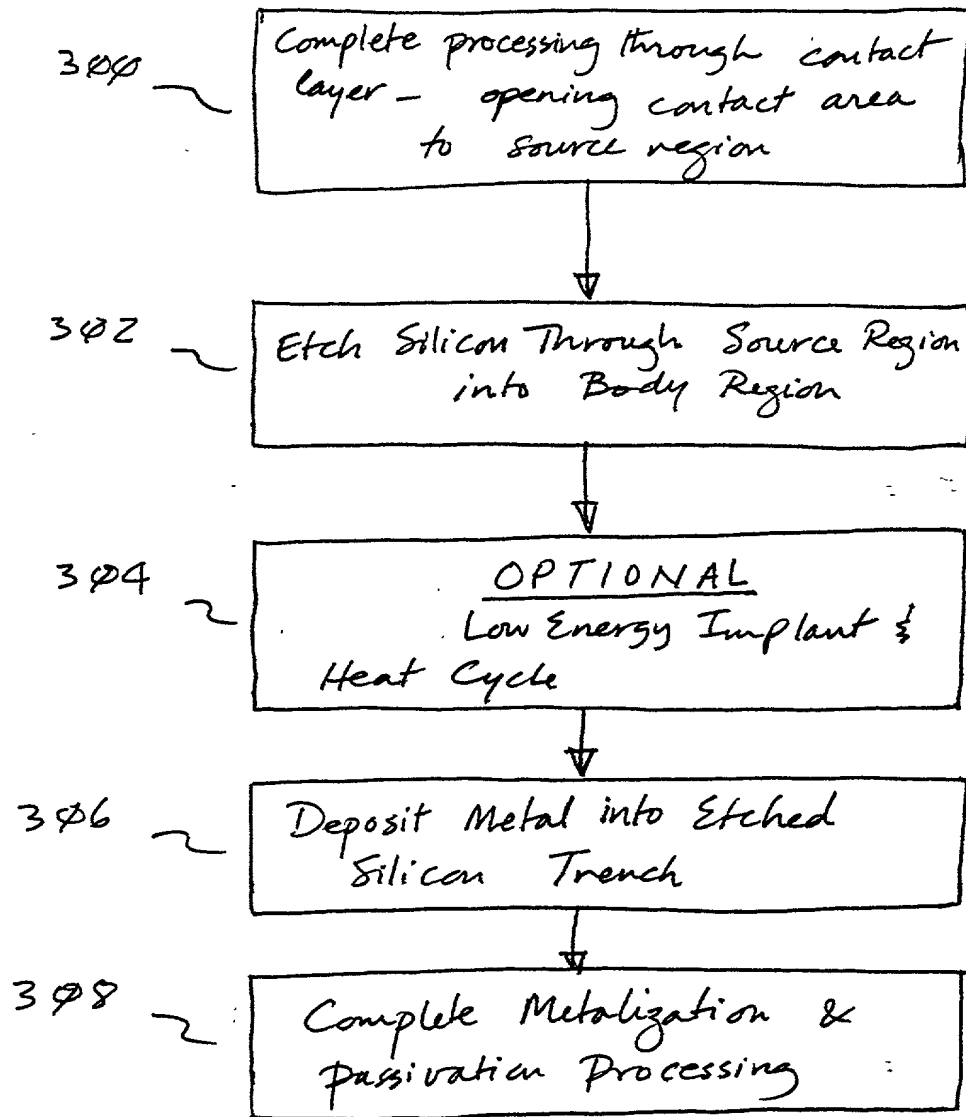 300
Complete processing through contact
layer - opening contact area
to source region
302
Etch Silicon Through Source Region
into Body Region
304
OPTIONAL
Low Energy Implant &
Heat Cycle
306
Deposit Metal into Etched
Silicon Trench
308
Complete Metalization &
passivation Processing